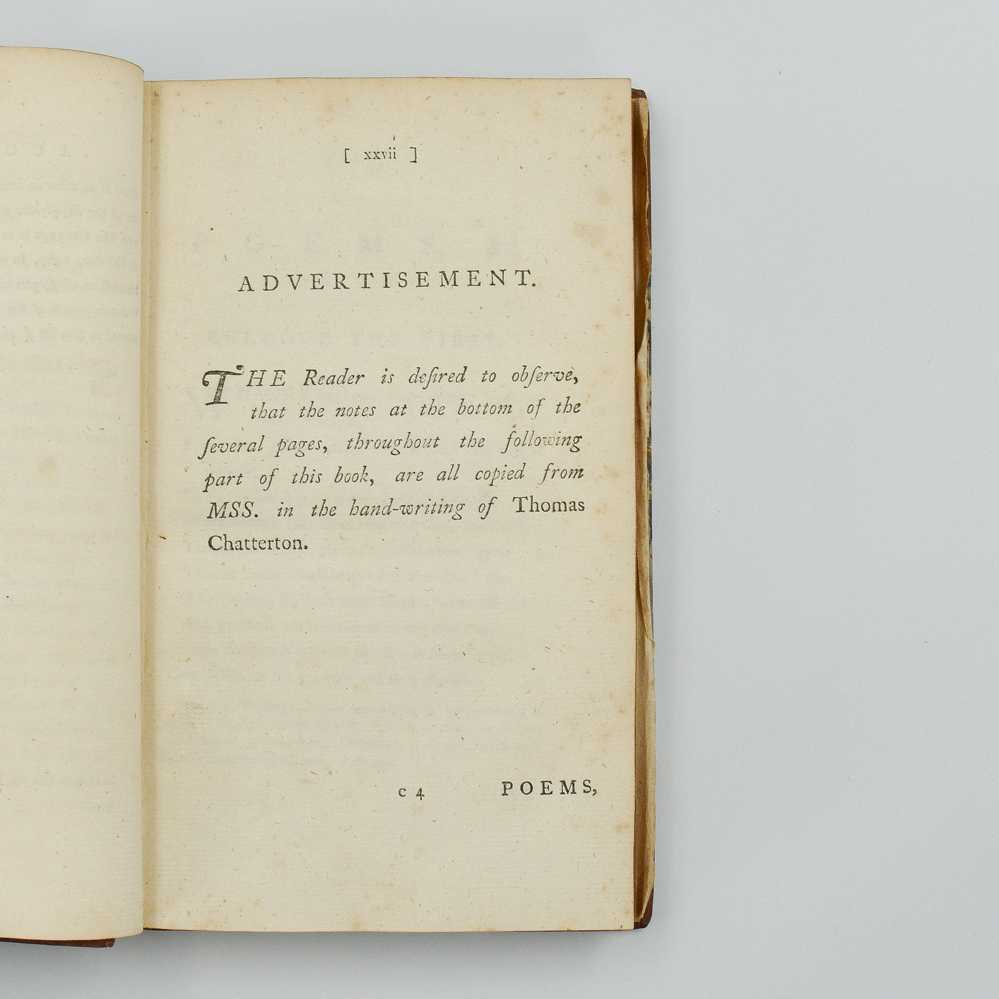 [ xxvii ]
ADVERTISEMENT.
THE Reader is deſired to obſerve,
that the notes at the bottom of the
ſeveral pages, throughout the following
part of this book, are all copied from
MSS. in the hand-writing of Thomas
Chatterton.
C 4 POEMS,